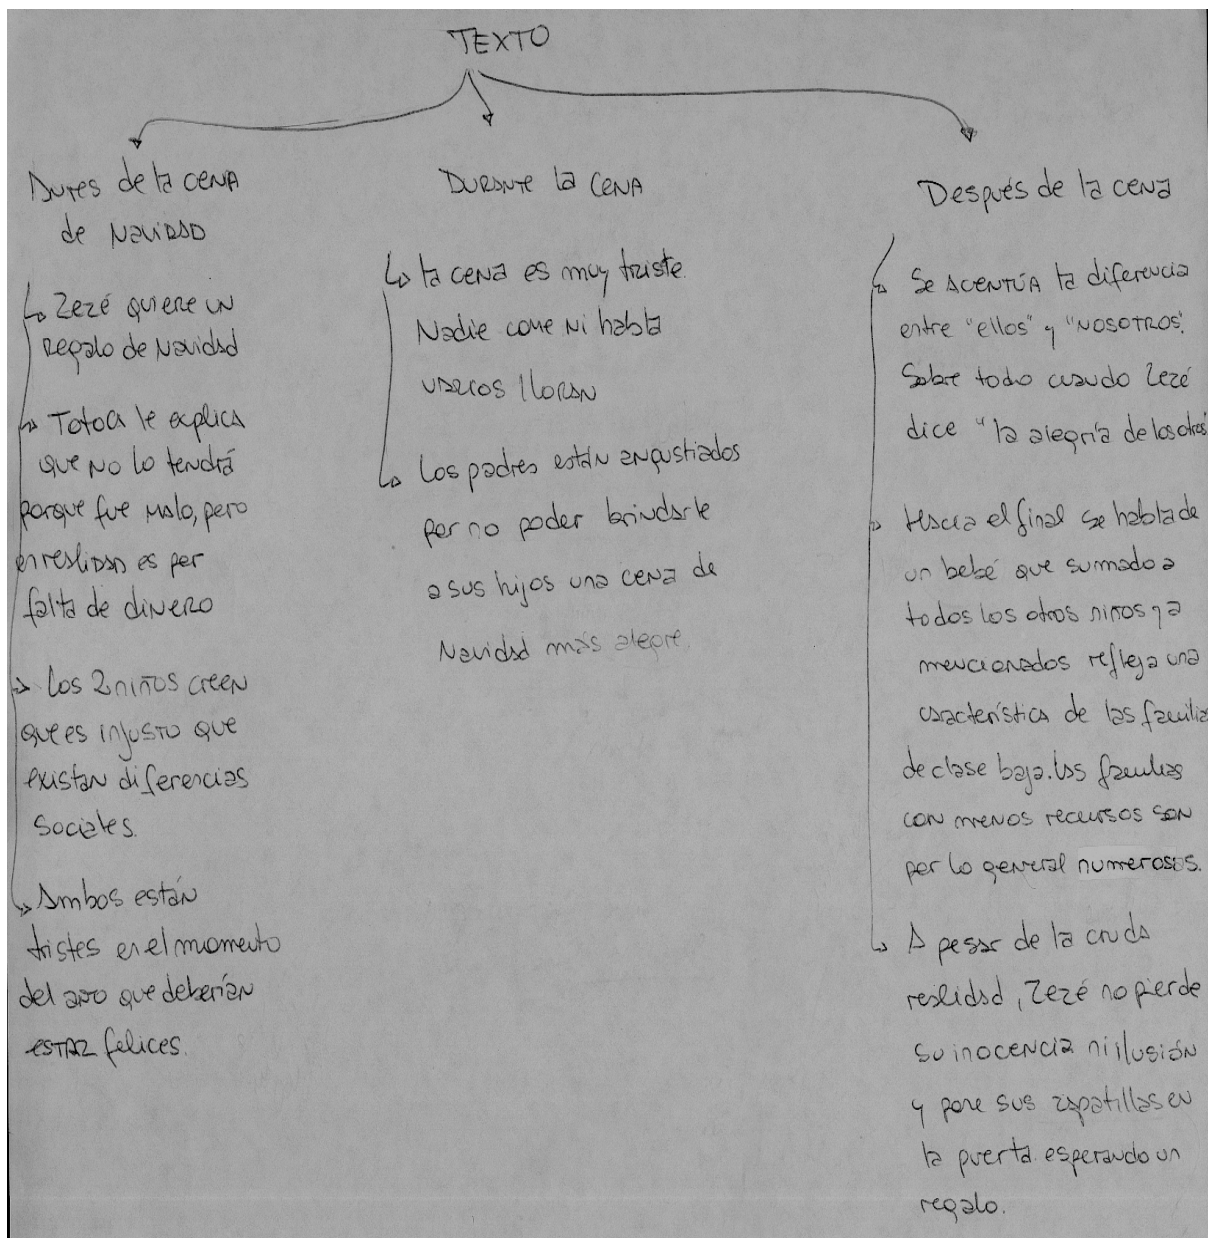 TEXTO
Antes de la cena
de Navidad
Zezé quiere un
regalo de Navidad
Totoca le explica
que no lo tendrá
porque fue malo, pero
en realidad es por
falta de dinero
Los 2 niños creen
que es injusto que
existan diferencias
sociales.
Ambos están
tristes en el momento
del año que deberían
estar felices.
Durante la cena
la cena es muy triste.
Nadie come ni habla
varios lloran
Los padres están angustiados
por no poder brindarle
a sus hijos una cena de
Navidad más alegre.
Después de la cena
Se acentúa la diferencia
entre "ellos" y "nosotros".
Sobre todo cuando Zezé
dice "la alegría de los otros"
Hacia el final se habla de
un bebé que sumado a
todos los otros niños ya
mencionados refleja una
característica de las familias
de clase baja. Las familias
con menos recursos son
por lo general numerosos.
A pesar de la cruda
realidad, Zezé no pierde
su inocencia ni ilusión
y pone sus zapatillas en
la puerta esperando un
regalo.